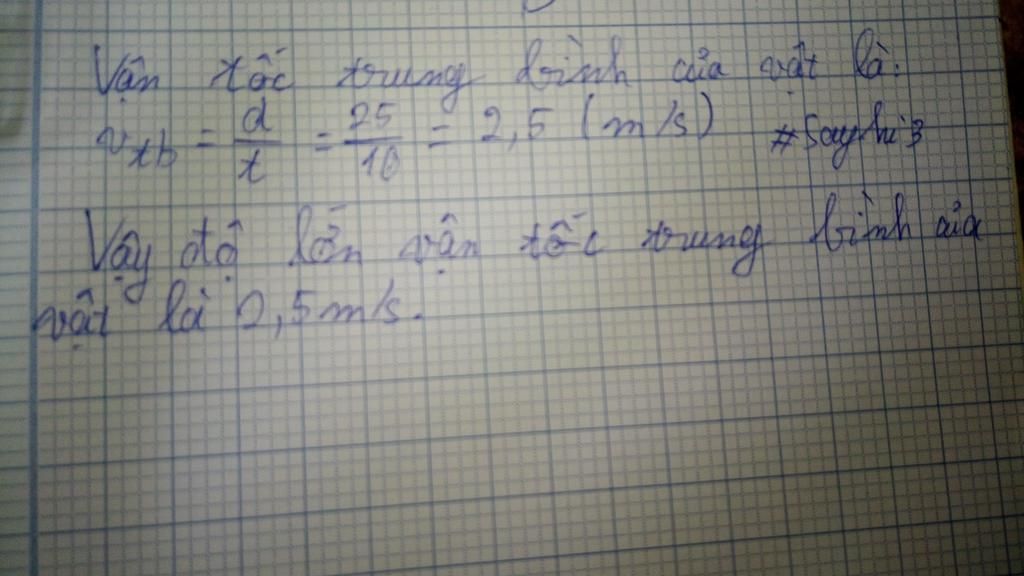 Vận tốc trung bình của vật là:
v_tb = d/t = 25/10 = 2,5 (m/s) #Sayhi3
Vậy độ lớn vận tốc trung bình của
vật là 2,5m/s.